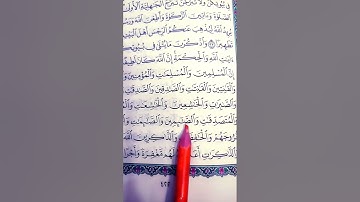 فِي بُيُوتِكُنَّ وَلَا تَبَرَّجْنَ تَبَرُّجَ ٱلْجَٰهِلِيَّةِ ٱلْأُولَىٰ
ٱلصَّلَوٰةَ وَءَاتِينَ ٱلزَّكَوٰةَ وَأَطِعْنَ ٱللَّهَ
يُرِيدُ ٱللَّهُ لِيُذْهِبَ عَنكُمُ ٱلرِّجْسَ أَهْلَ ٱلْبَيْتِ
تَطْهِيرًا ٣٣ وَٱذْكُرْنَ مَا يُتْلَىٰ فِي بُيُوتِكُنَّ
ءَايَٰتِ ٱللَّهِ وَٱلْحِكْمَةِ إِنَّ ٱللَّهَ كَانَ لَطِيفًا
إِنَّ ٱلْمُسْلِمِينَ وَٱلْمُسْلِمَٰتِ وَٱلْمُؤْمِنِينَ
وَٱلْقَٰنِتِينَ وَٱلْقَٰنِتَٰتِ وَٱلصَّٰدِقِينَ وَٱلصَّٰدِقَٰتِ
وَٱلصَّٰبِرَٰتِ وَٱلْخَٰشِعِينَ وَٱلْخَٰشِعَٰتِ
وَٱلْمُتَصَدِّقَٰتِ وَٱلصَّٰٓئِمِينَ وَٱلصَّٰٓئِمَٰتِ
فُرُوجَهُمْ وَٱلْحَٰفِظَٰتِ وَٱلذَّٰكِرِينَ ٱللَّهَ
وَٱلذَّٰكِرَٰتِ أَعَدَّ ٱللَّهُ لَهُم مَّغْفِرَةً وَأَجْرًا
٤٢٢